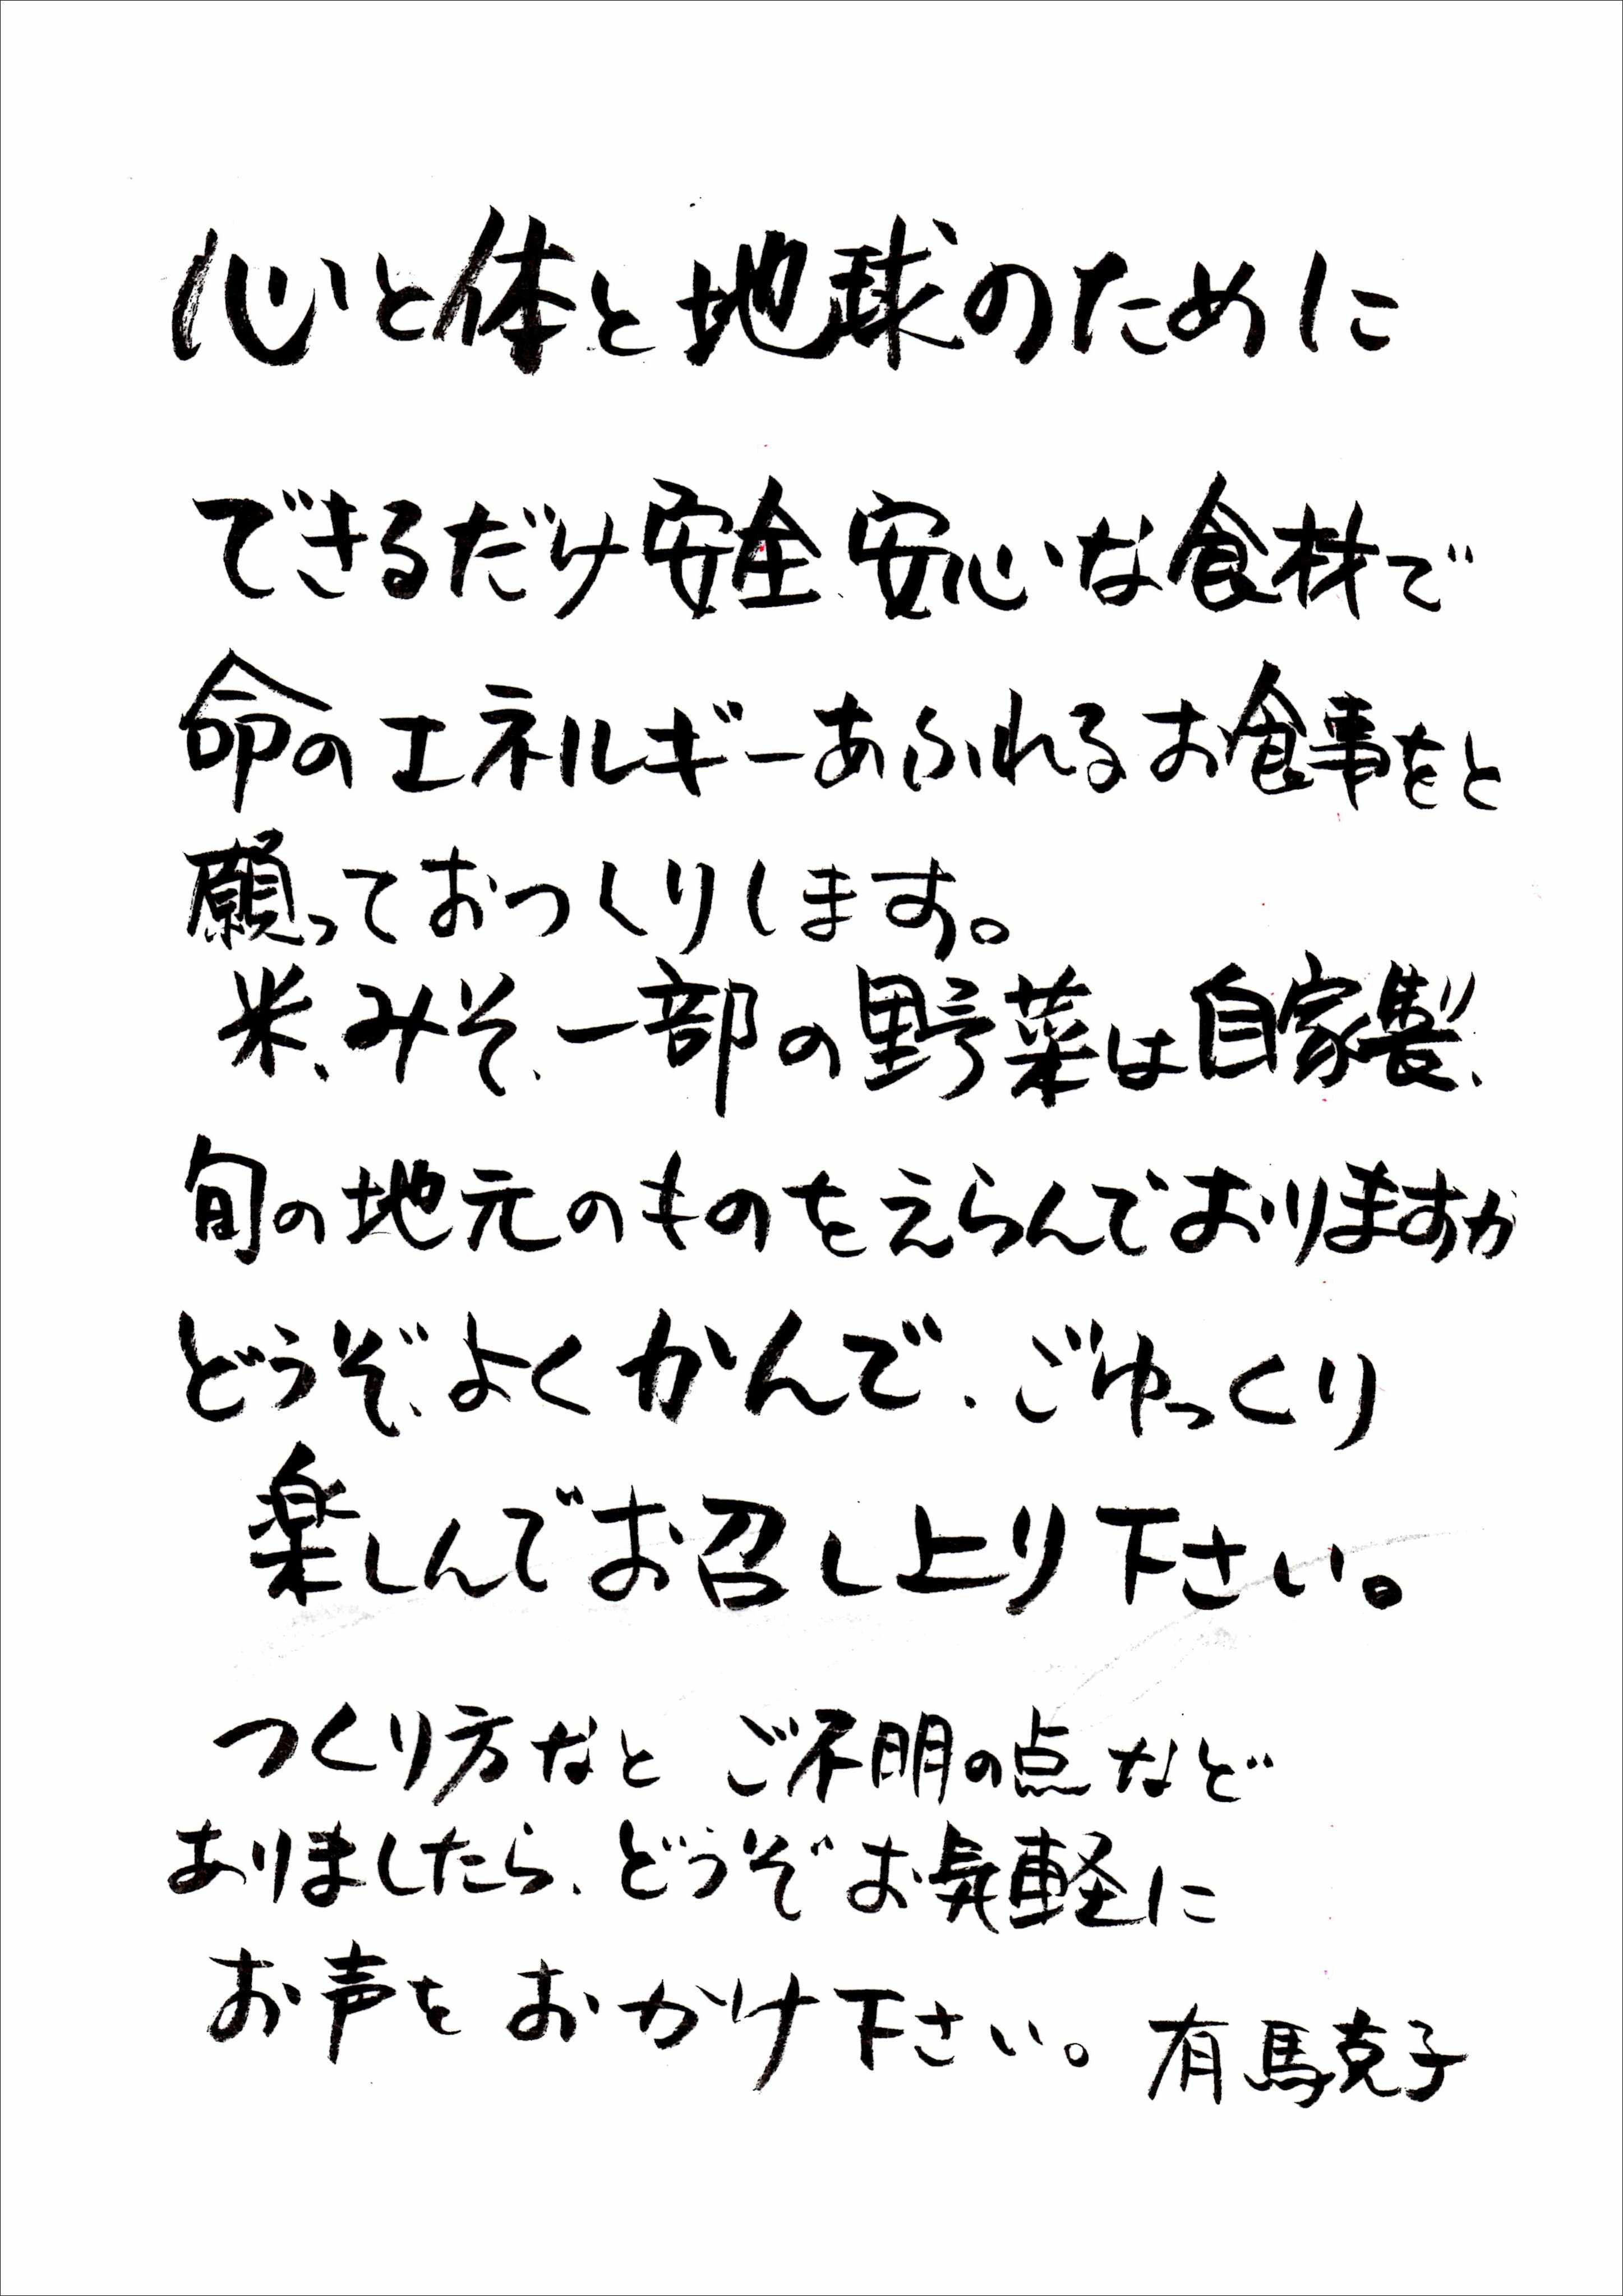 心と体と地球のために
できるだけ安全、安心な食材で
命のエネルギーあふれるお食事をと
願っておつくりします。
米、みそ、一部の野菜は自家製、
旬の地元のものをえらんでおりますか
どうぞ、よくかんで、ごゆっくり
楽しんでお召し上り下さい。
つくり方なと ご不明の点など
ありましたら、どうぞお気軽に
お声を おかけ下さい。 有馬克子